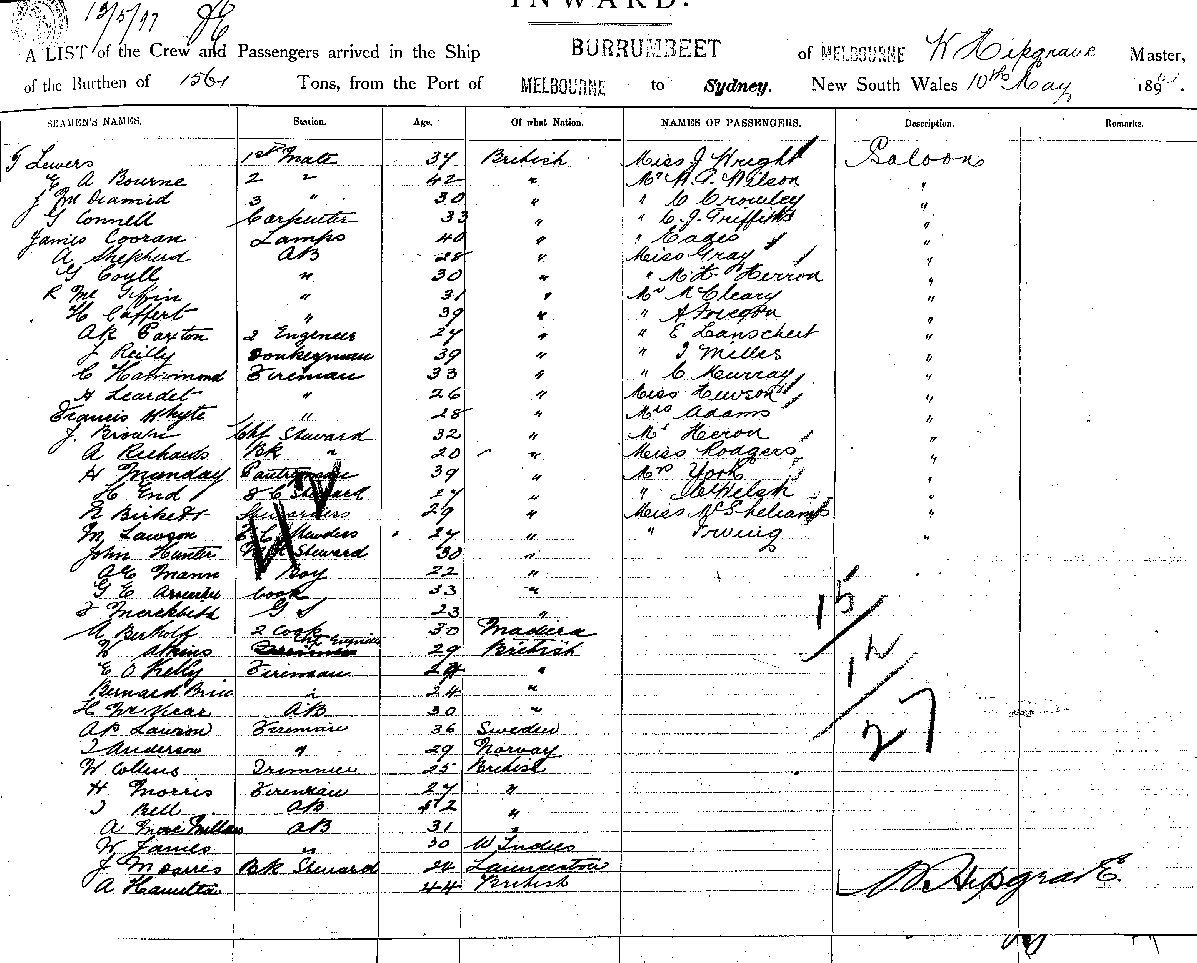 INWARD.
A LIST of the Crew and Passengers arrived in the Ship BURRUMBEET of MELBOURNE W Hipgrave Master,
of the Burthen of 1561 Tons, from the Port of MELBOURNE to Sydney. New South Wales 10th May 189
SEAMEN'S NAMES. Station. Age. Of what Nation. NAMES OF PASSENGERS. Description. Remarks.
Lewers 1st Mate 37 British Miss J Wright Saloon
A Bourne 2 " 42 " Mr Wilson "
3 " 30 " " C Crowley "
G Connell Carpenter 33 " " C. J. Griffiths "
James Cooran Lamps 40 " " Eades "
A Shepherd AB 28 " Miss Gray "
G Coull " 30 " " Herron "
R Mc Giffin " 31 " Mr McCleary "
H Caffert " 39 " " A "
AR Paxton 2 Engeneer 27 " " E Lanschert "
J Reilly Donkeyman 39 " " J Milles "
C Hammond Fireman 33 " " C Murray "
H Leardet " 26 " Miss Hewson "
Francis Whyte " 28 " Mrs Adams "
J. Brown Chf Steward 32 " Mr Heron "
A Richards BK " 20 " Miss Rodgers "
H Munday Pantryman 39 " Mrs York "
H End Steward 27 " " Welsh "
Birkett 29 " Miss "
M Lawson 27 " " Irwing "
John Hunter Steward 30 "
Mann Boy 22 "
G E Cook 33 "
G S 23 "
2 Cook 30 Madiera
W Atkins Chf Engineer 29 British
E O Kelly Fireman "
Bernard " 24 "
H AB 30 "
Lawson Fireman 36 Sweden
J Anderson " 29 Norvay
W Collins Trimmer 25 British
H Morris Fireman 27 "
J Bell AB "
A AB 31 "
W James " 30 W Indies
J BK Steward 24 Launceston
A Hamilton 44 British
15
12
27
W. Hipgrave